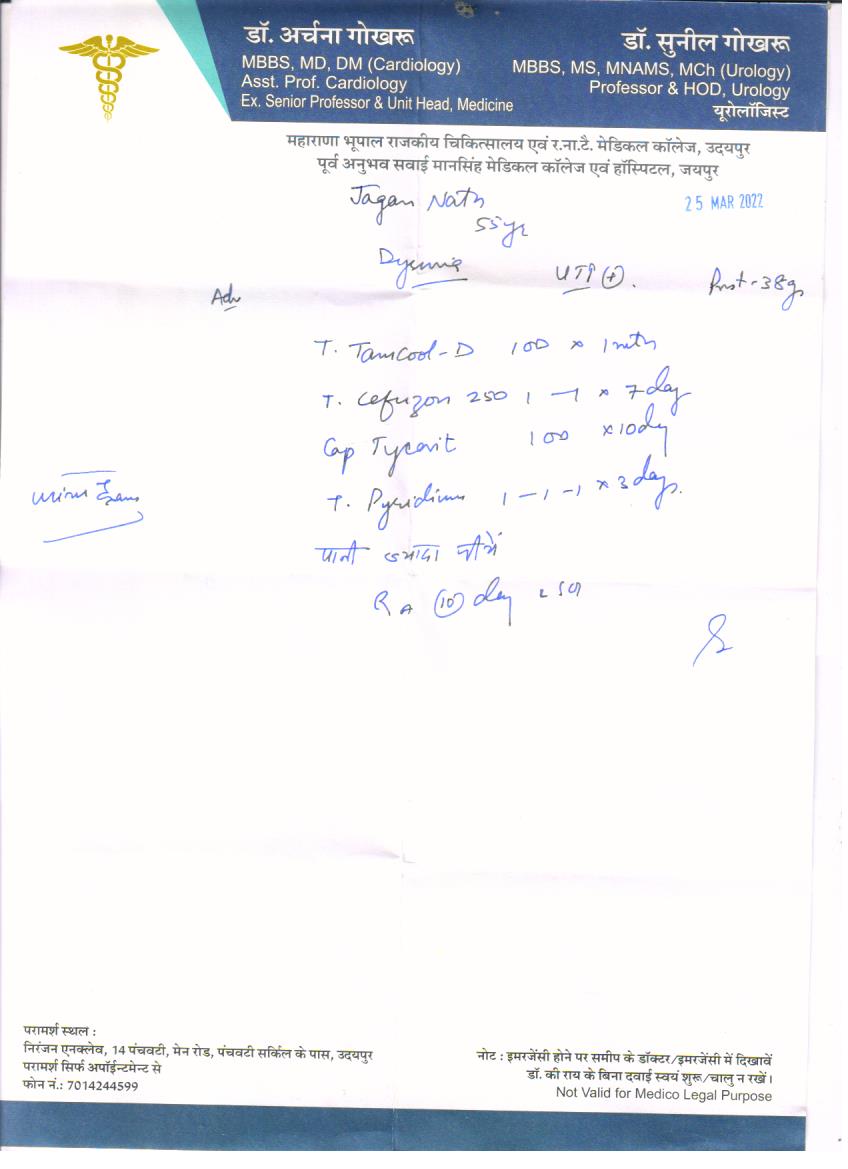 डॉ. अर्चना गोखरू
MBBS, MD, DM (Cardiology)
Asst. Prof. Cardiology
Ex. Senior Professor & Unit Head, Medicine
डॉ. सुनील गोखरू
MBBS, MS, MNAMS, MCh (Urology)
Professor & HOD, Urology
यूरोलॉजिस्ट
महाराणा भूपाल राजकीय चिकित्सालय एवं र.ना.टै. मेडिकल कॉलेज, उदयपुर
पूर्व अनुभव सवाई मानसिंह मेडिकल कॉलेज एवं हॉस्पिटल, जयपुर
Jagan Nath
25 MAR 2022
55yr
UTI (+).
Prost-38g
Adv
T. Tamcool-D 100 x 1mth
T. Cefuzon 250 1 -1 x 7day
Cap 100 x10dy
T. Pyridium 1-1-1 x 3days.
पानी ज्यादा पीयें
(10) day
परामर्श स्थल :
निरंजन एनक्लेव, 14 पंचवटी, मेन रोड, पंचवटी सर्किल के पास, उदयपुर
परामर्श सिर्फ अपॉईन्टमेन्ट से
फोन नं.: 7014244599
नोट : इमरजेंसी होने पर समीप के डॉक्टर/इमरजेंसी में दिखावें
डॉ. की राय के बिना दवाई स्वयं शुरू/चालु न रखें।
Not Valid for Medico Legal Purpose